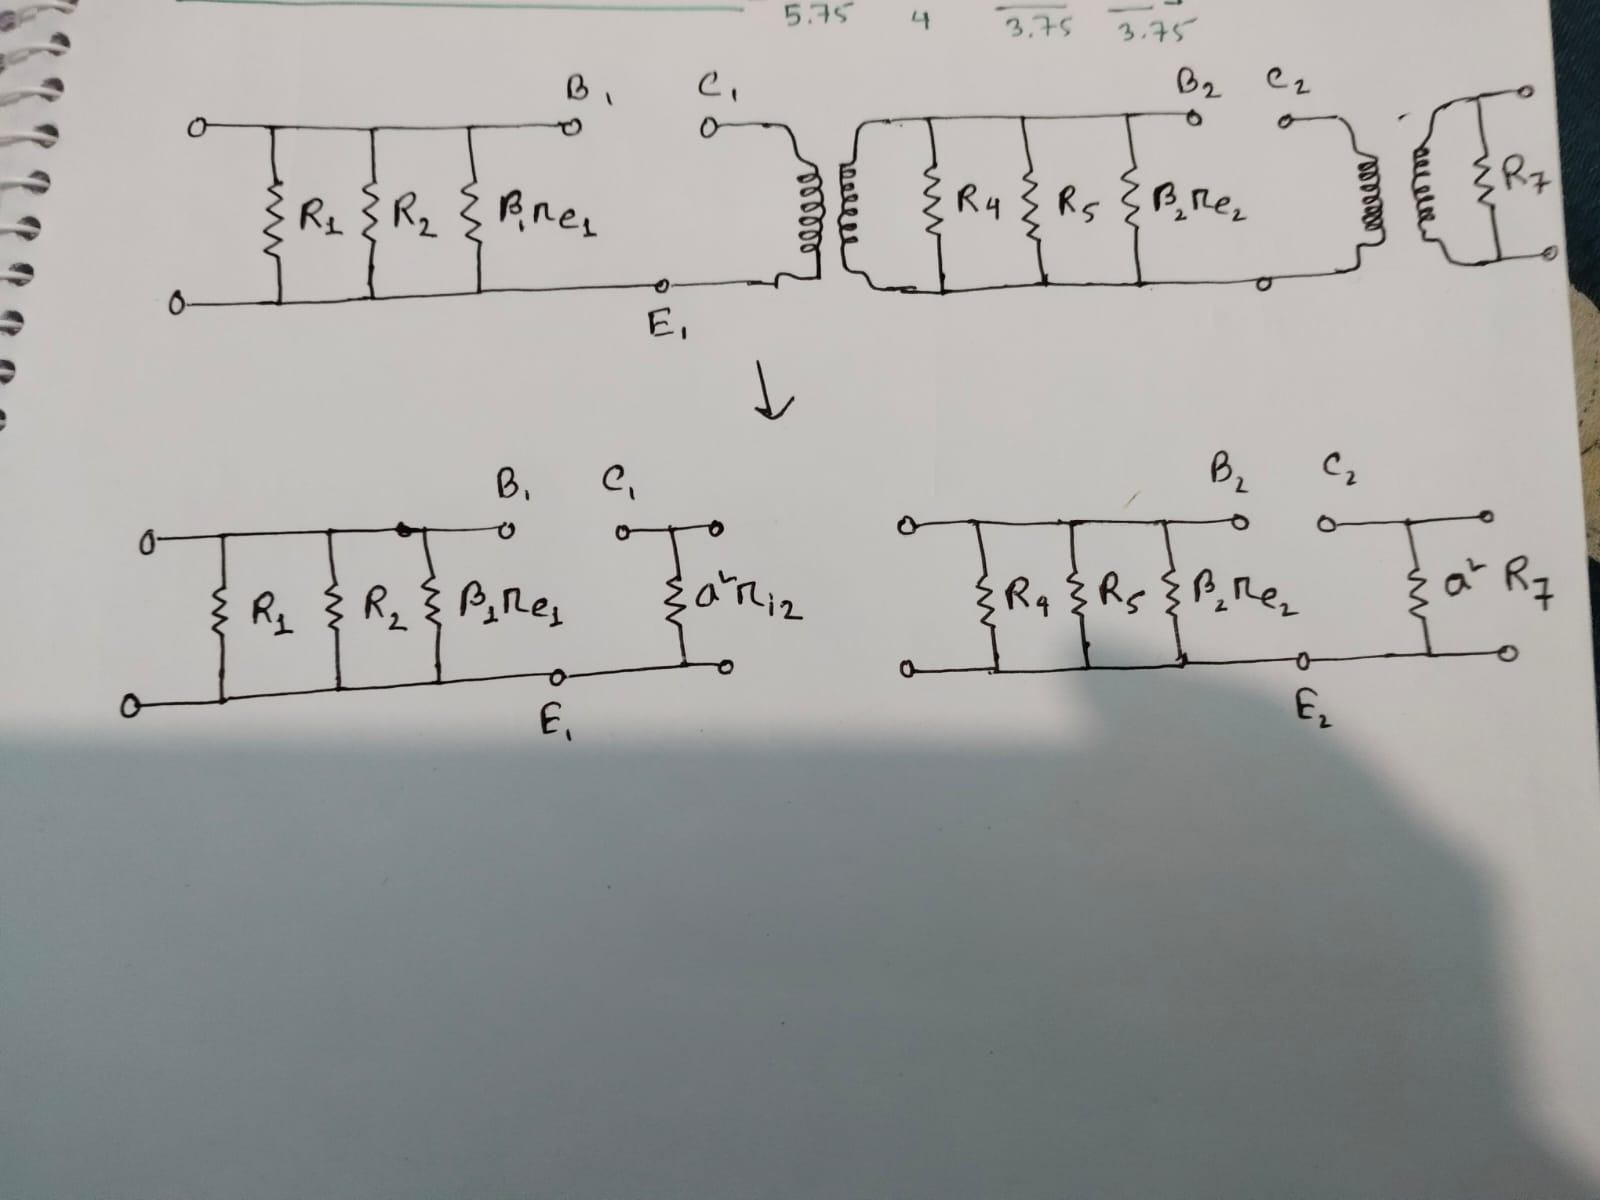 5.75 4 3.75 3.75
B₁ C₁ B₂ C₂
R₁ R₂ β₁re₁ R₄ R₅ β₂re₂ R₇
E₁
↓
B₁ C₁ B₂ C₂
R₁ R₂ β₁re₁ a²ri₂ R₄ R₅ β₂re₂ a² R₇
E₁ E₂